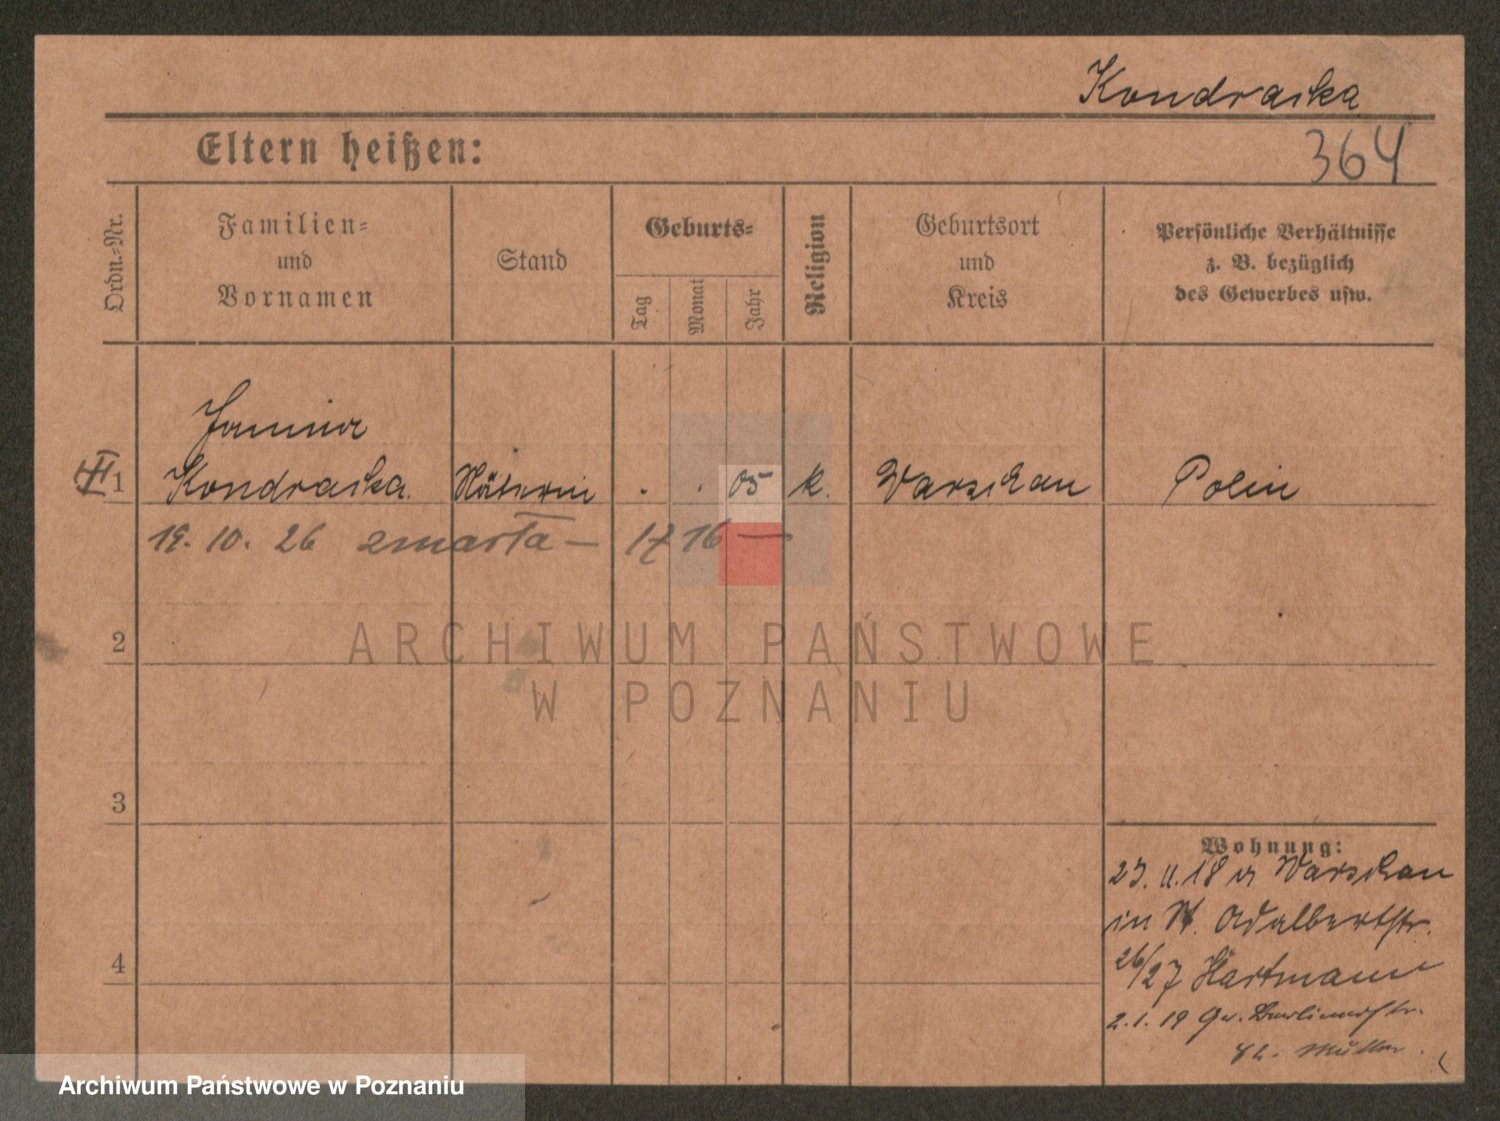 Kondraska
364
Eltern heißen:
Ordn.-Nr.
Familien-
und
Vornamen
Stand
Geburts-
Tag
Monat
Jahr
Religion
Geburtsort
und
Kreis
Persönliche Verhältnisse
z. B. bezüglich
des Gewerbes usw.
Janina
1 Kondraska. Näherin . . 05 k. Warschau Polin
19. 10. 26 zmarła — 17 16 —
2
ARCHIWUM PAŃSTWOWE
W POZNANIU
3
Wohnung:
23. 11. 18 Warschau
in St. Adalbertstr.
4
26/27 Hartmann
2. 1. 19 Gr. Berlinerstr.
82. Müller.
Archiwum Państwowe w Poznaniu